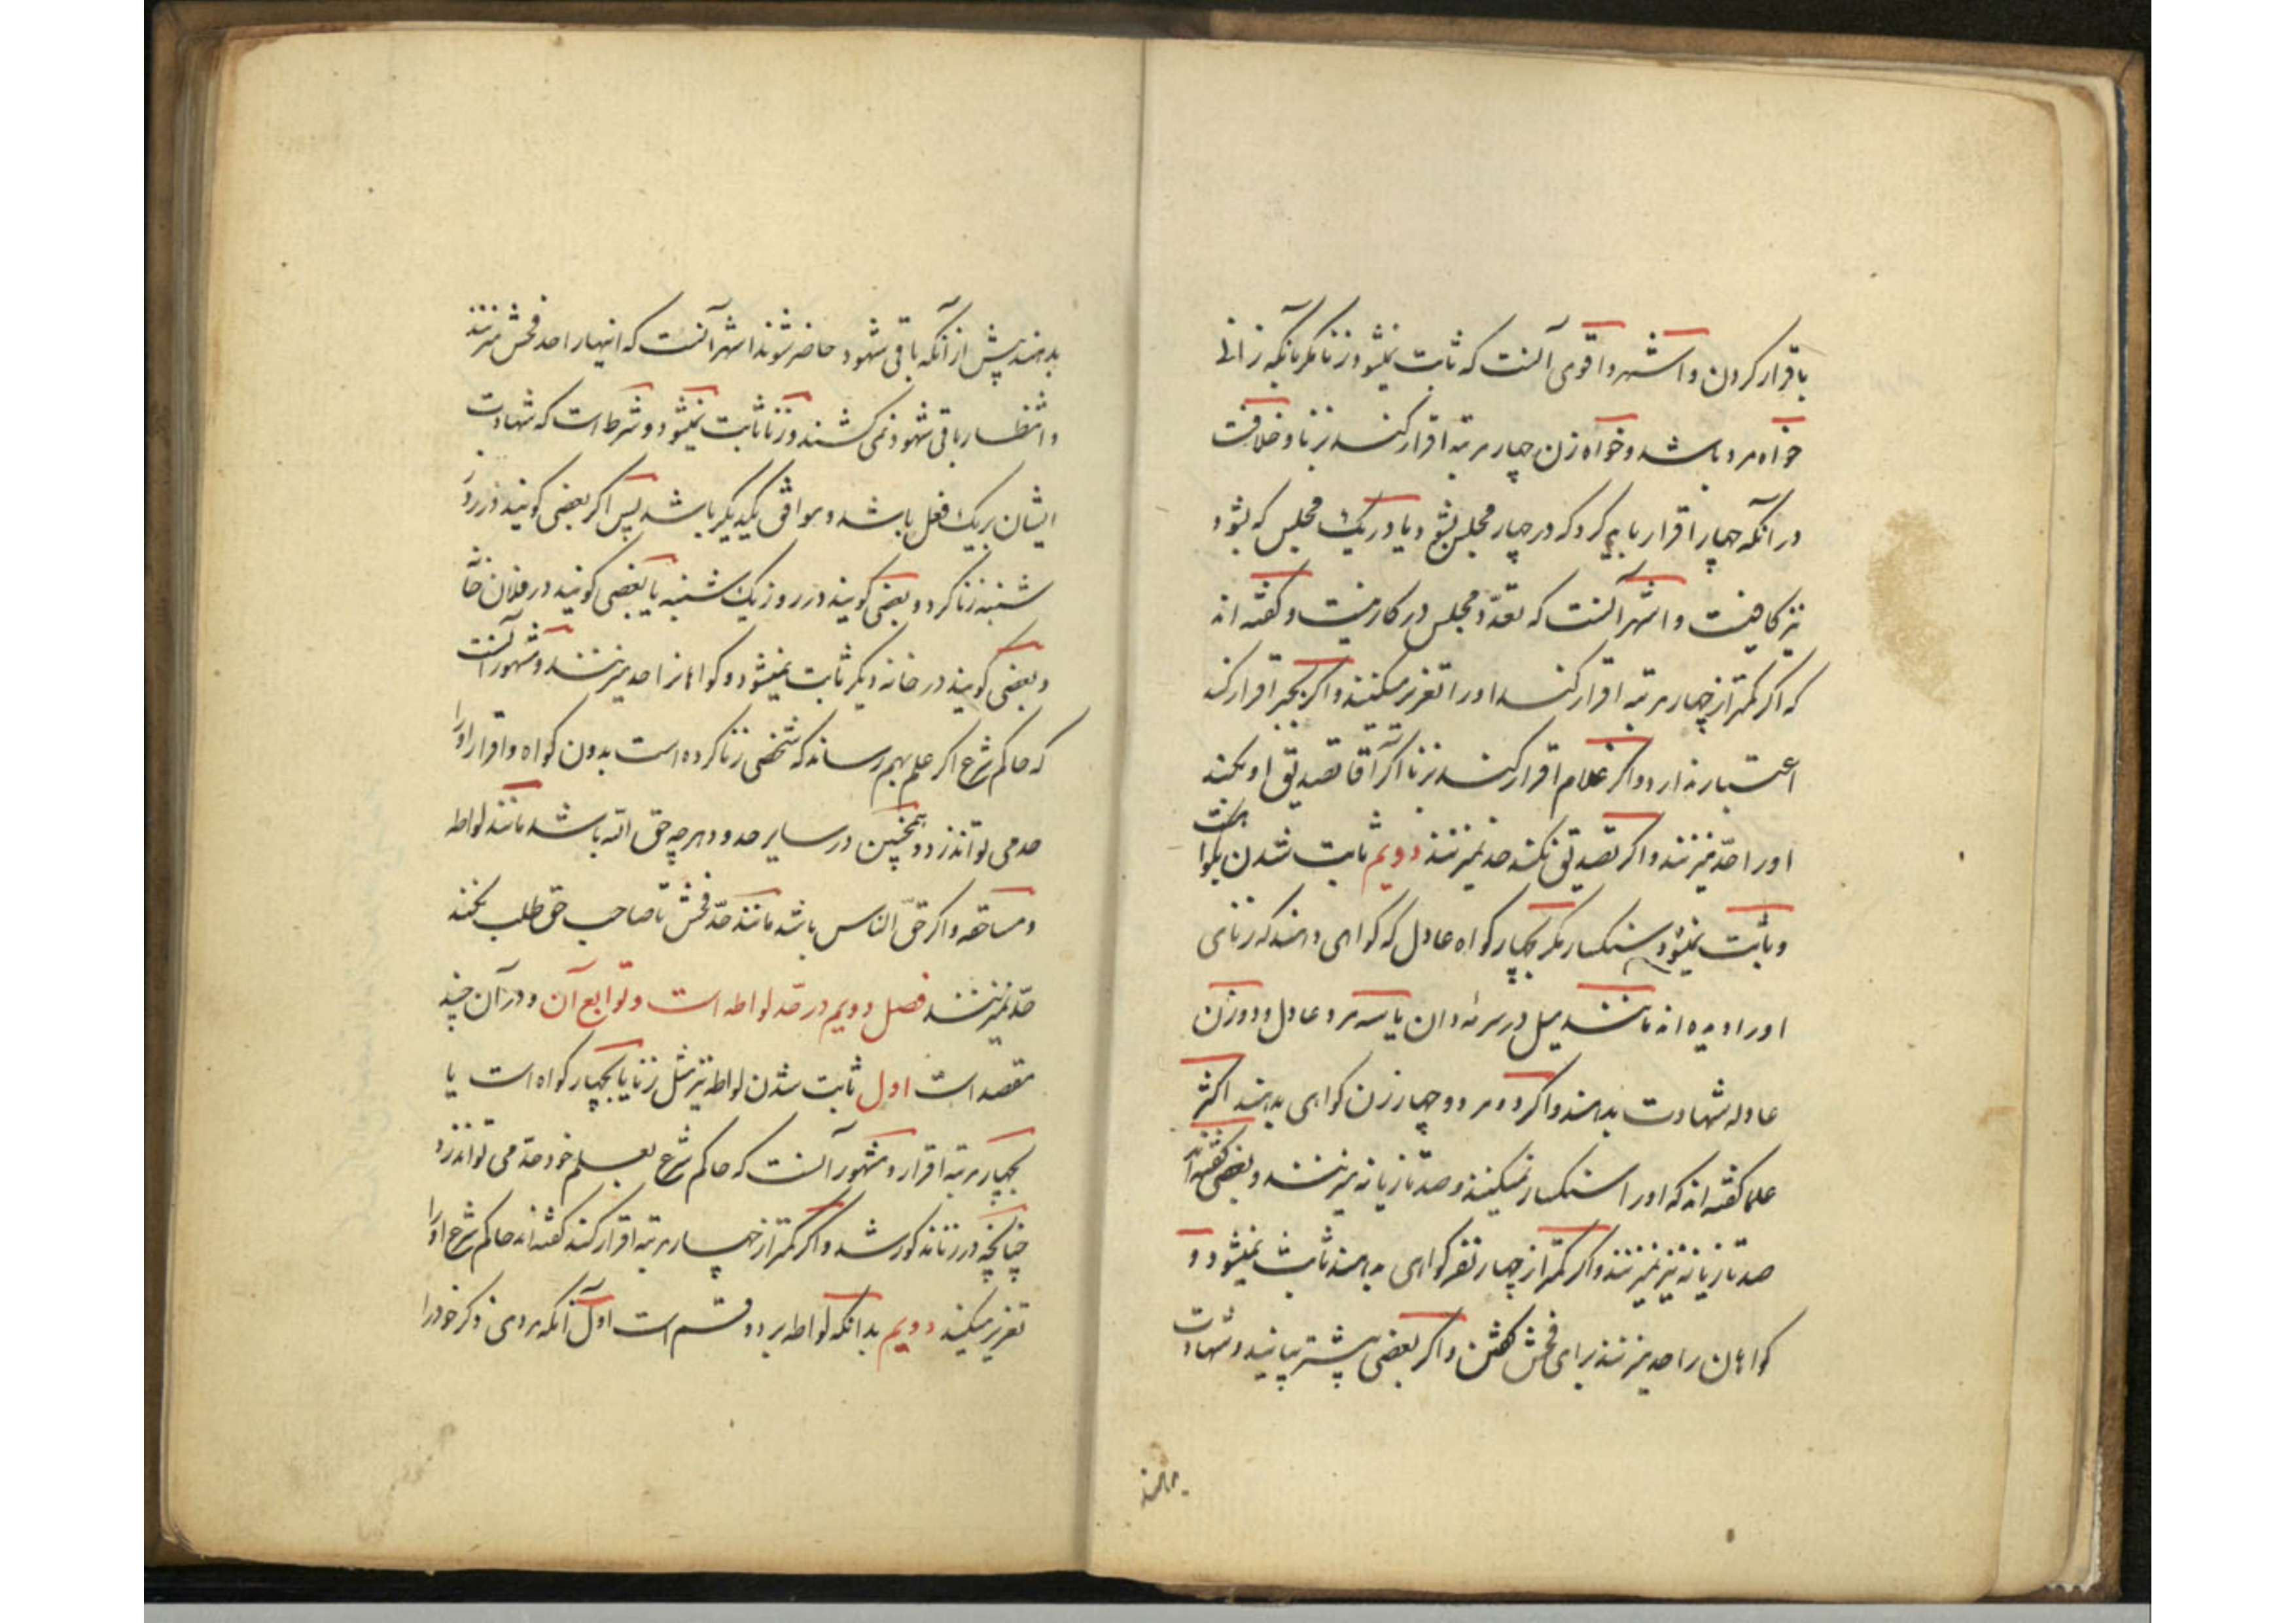 باقرار کردن و اشهر و اقوی آنست که ثابت نمیشود زنا مکر بآنکه زانی
خواه مرد باشد و خواه زن چهار مرتبه اقرار کند بزنا و خلافست
در آنکه چهار اقرار باید کرد که در چهار مجلس بشود یا در یک مجلس که بشود
نیز کافیست و اشهر آنست که تعدّد مجلس در کار نیست و کفته اند
که اکر کمتر از چهار مرتبه اقرار کند او را تعزیر میکنند و اکر بجبر اقرار کند
اعتبار ندارد و اکر غلام اقرار کند بزنا اکر آقا تصدیق او بکند
او را حدّ میزنند و اکر تصدیق نکند حد نمیزنند دویم ثابت شدن بکواهست
و ثابت نمیشود سنکسار مکر بچهار کواه عادل که کواهی دهند که زنای
او را دیده اند مانند میل در سرمه دان یا سه مرد عادل و دو زن
عادله شهادت بدهند و اکر دو مرد و چهار زن کواهی بدهند اکثر
علما کفته اند که او را سنکسار نمیکنند و صد تازیانه میزنند و بعضی کفته اند
صد تازیانه نیز نمیزنند و اکر کمتر از چهار نفر کواهی بدهند ثابت نمیشود و
کواهان را حد میزنند برای فحش کفتن و اکر بعضی پیشتر بیایند و شهادت
بدهند
بدهند پیش از آنکه باقی شهود حاضر شوند اشهر آنست که اینها را حد فحش میزنند
و انتظار باقی شهود نمی کشند و زنا ثابت نمیشود و شرط است که شهادت
ایشان بریک فعل باشد و موافق یکدیکر باشد پس اکر بعضی کویند در روز
شنبه زنا کرد و بعضی کویند در روز یک شنبه یا بعضی کویند در فلان خانه
و بعضی کویند در خانه دیکر ثابت نمیشود و کواهانرا حد میزنند و مشهور آنست
که حاکم شرع اکر علم بهم رساند که شخصی زنا کرده است بدون کواه و اقرار او را
حد می تواند زد و همچنین در سایر حدود هر چه حق الله باشد مانند لواطه
و مساحقه و اکر حقّ الناس باشد مانند حدّ فحش تا صاحب حق طلب نکند
حدّ نمیزنند فصل دویم در حدّ لواطه است و توابع آن و در آن چند
مقصد است اول ثابت شدن لواطه نیز مثل زنا یا بچهار کواه است یا
بچهار مرتبه اقرار و مشهور آنست که حاکم شرع بعلم خود حدّ می تواند زد
چنانچه در زنا مذکور شد و اکر کمتر از چهار مرتبه اقرار کند کفته اند حاکم شرع او را
تعزیر میکند دویم بدانکه لواطه بر دو قسم است اول آنکه مردی ذکر خود را